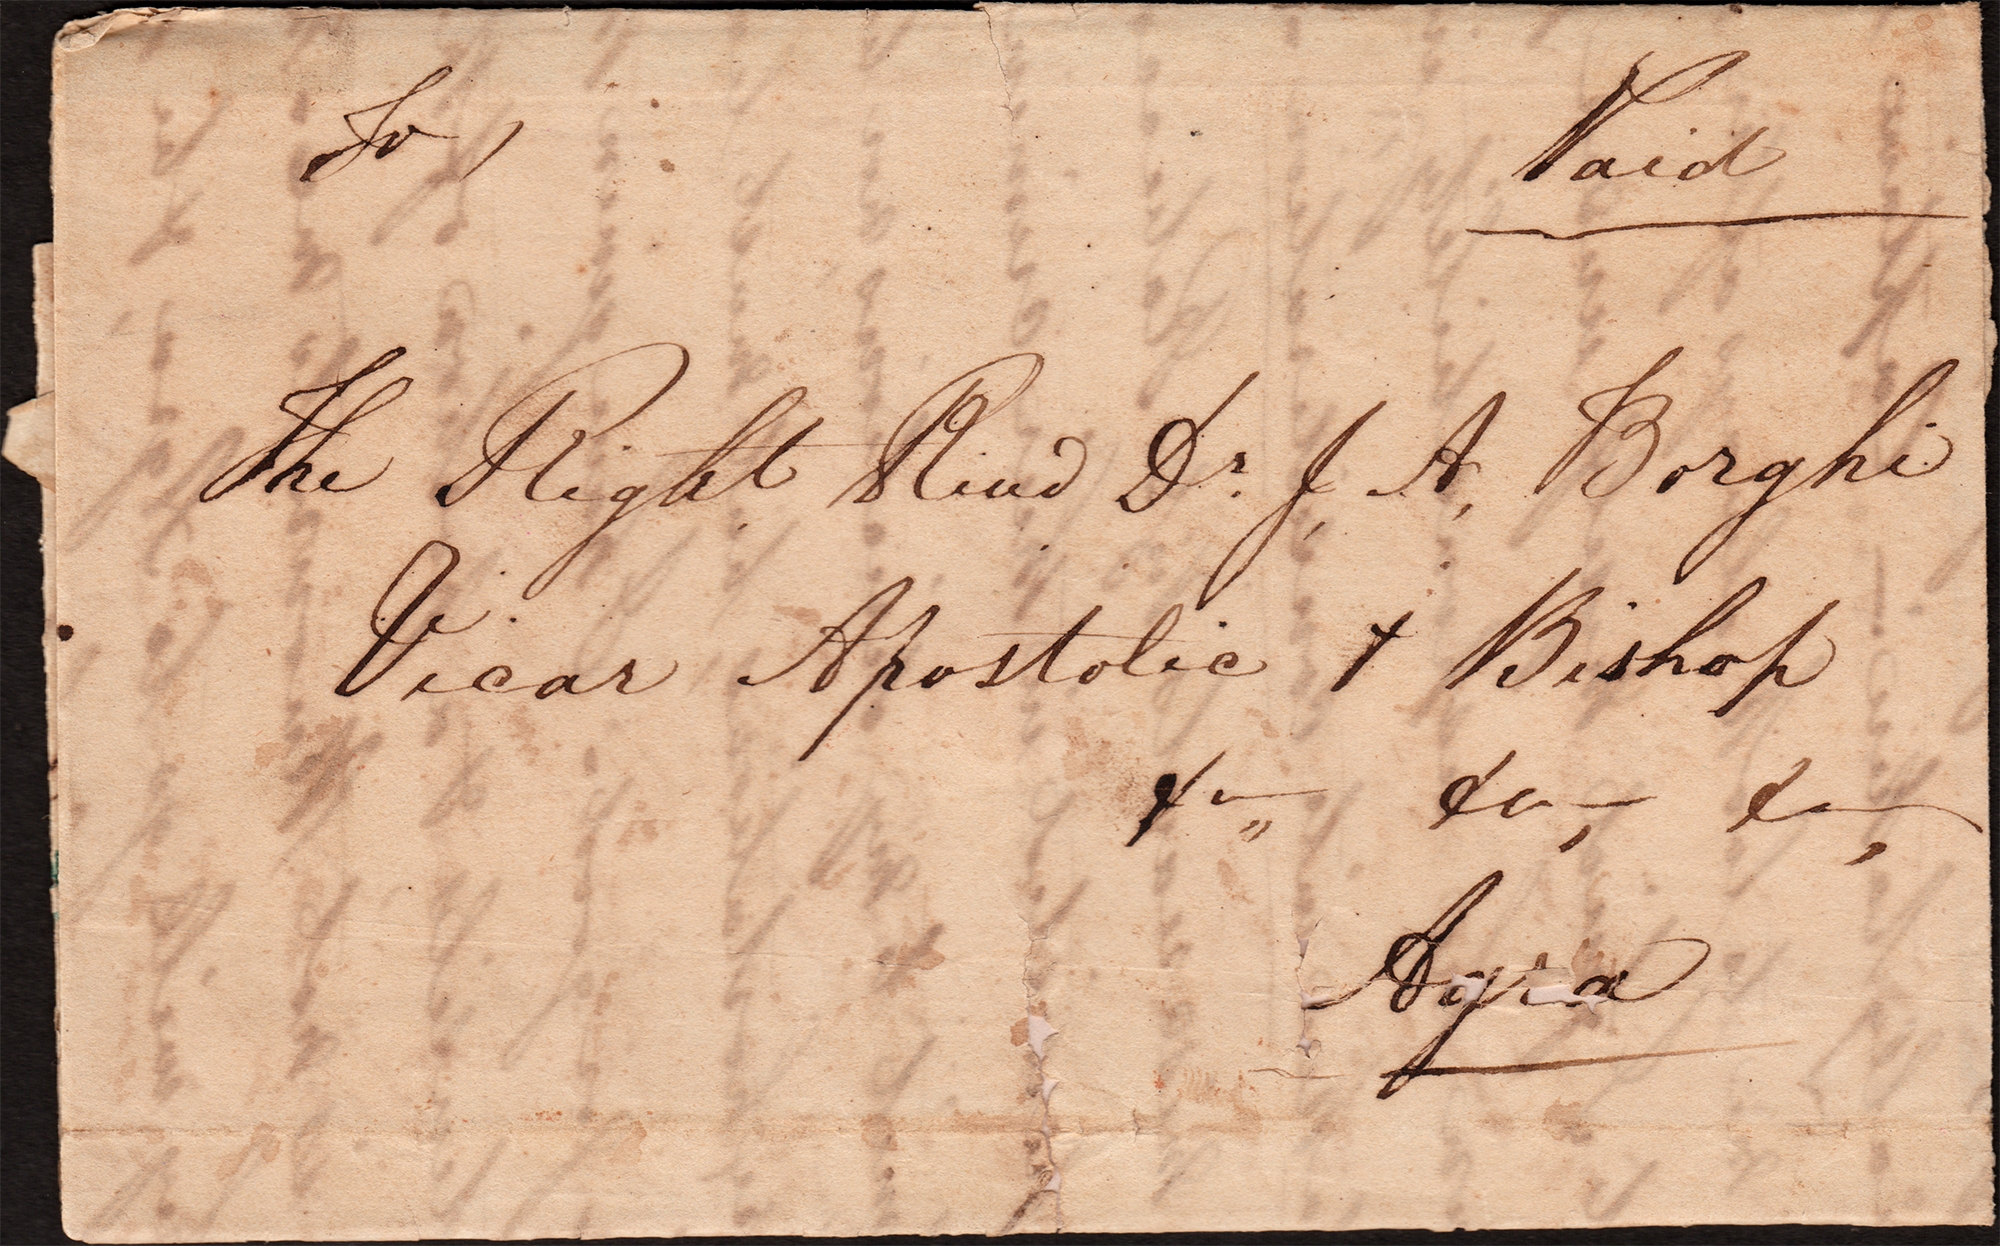 To,
Paid
The Right Revd Dr. J, A, Borghi
Vicar Apostolic & Bishop
&c,, &c, &c,
Agra